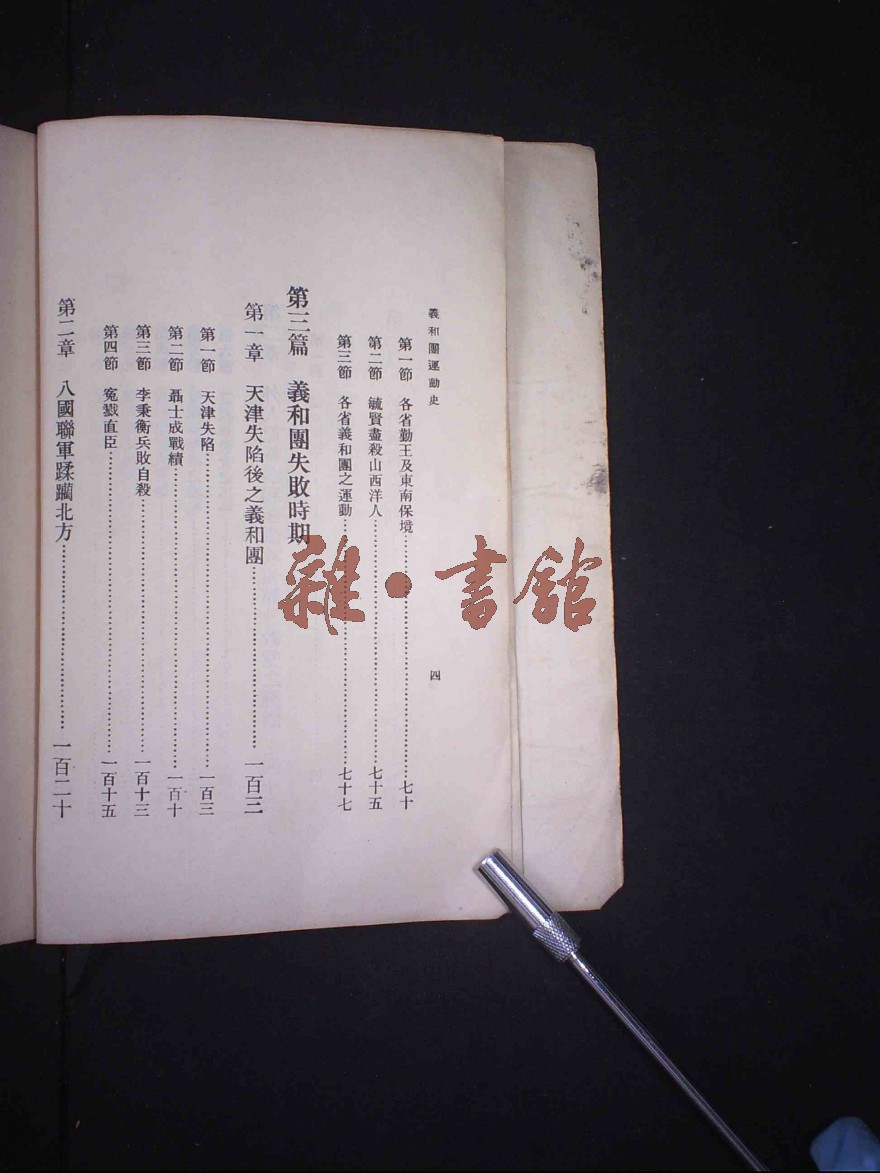 義和團運動史
四
第一節　各省勤王及東南保境……………七十
第二節　毓賢盡殺山西洋人……………七十五
第三節　各省義和團之運動……………七十七
第三篇　義和團失敗時期
第一章　天津失陷後之義和團……………一百三
第一節　天津失陷……………一百三
第二節　聶士成戰績……………一百十
第三節　李秉衡兵敗自殺……………一百十三
第四節　寃戮直臣……………一百十五
第二章　八國聯軍蹂躪北方……………一百二十
雜·書館